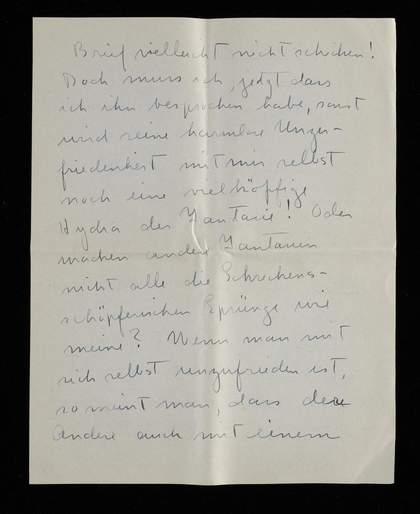 Brief vielleicht nicht schicken!
Doch muss ich, jetzt dass
ich ihn besprochen habe, sonst
wird seine harmlose Unzu-
friedenheit mit mir selbst
noch eine vielköpfige
Hydra der Fantasie! Oder
machen andere Fantasien
nicht alle die Schreckens-
schöpferischen Sprünge wie
meine? Wenn man mit
sich selbst unzufrieden ist,
so meint man, dass der
Andere auch mit einem